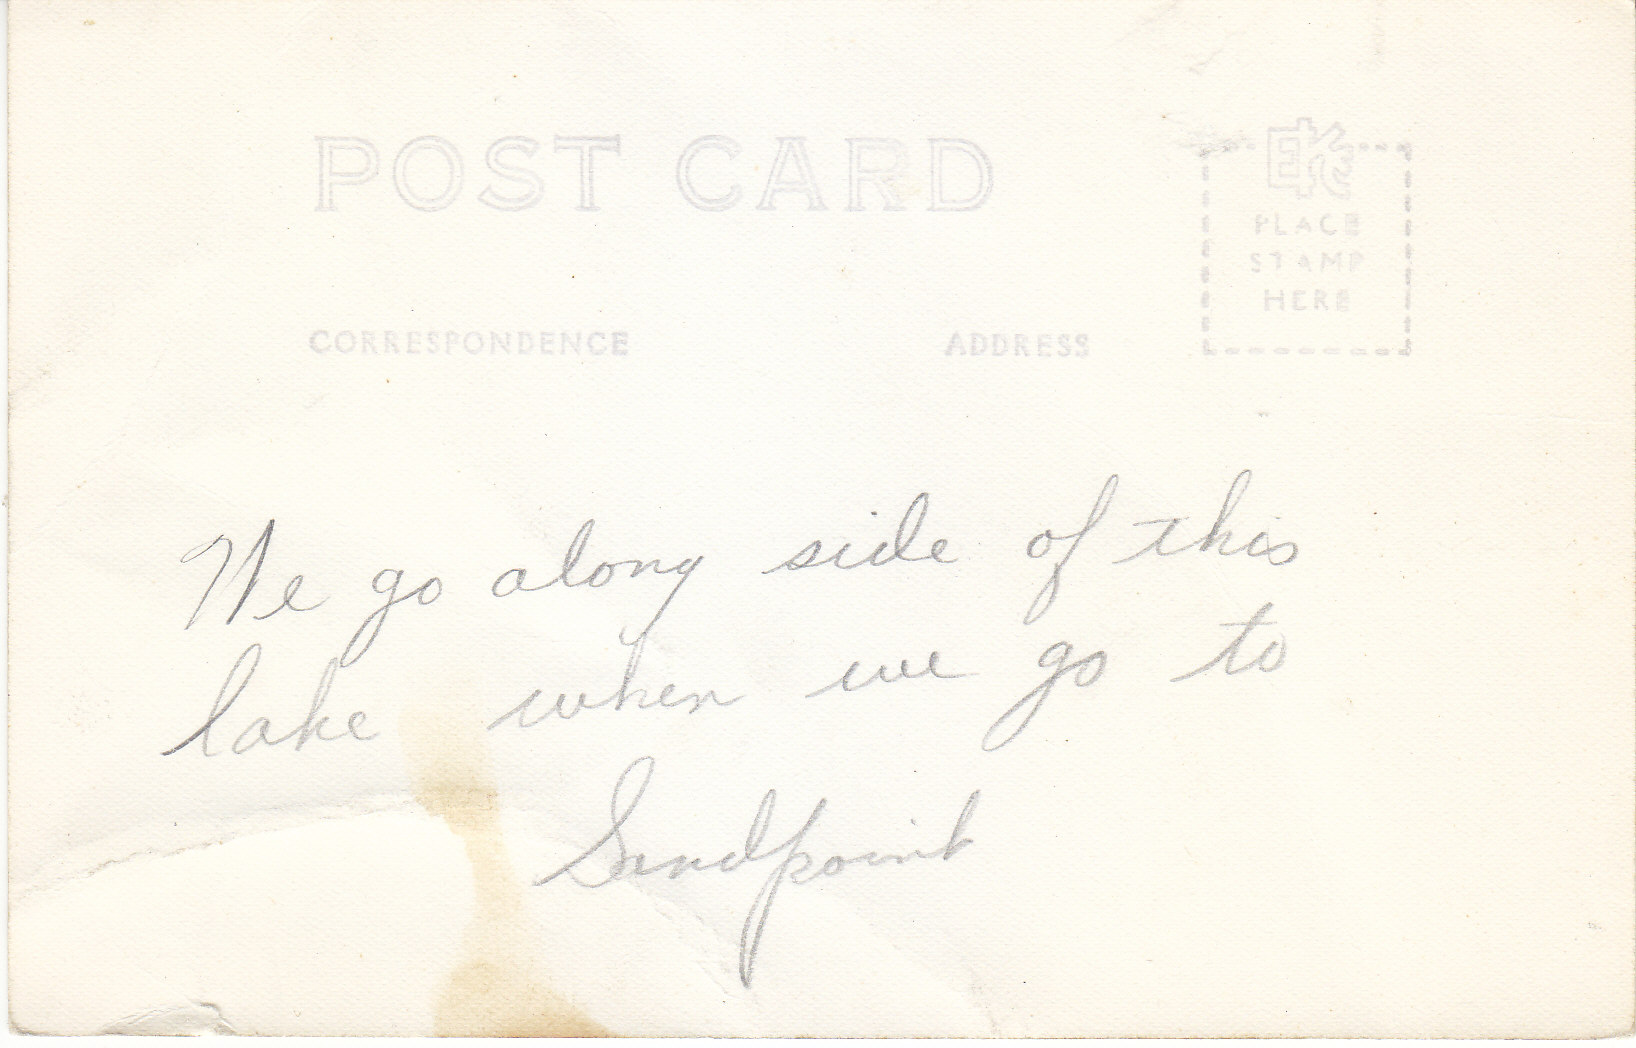 POST CARD
PLACE
STAMP
HERE
CORRESPONDENCE
ADDRESS
We go along side of this
lake when we go to
Sandpoint